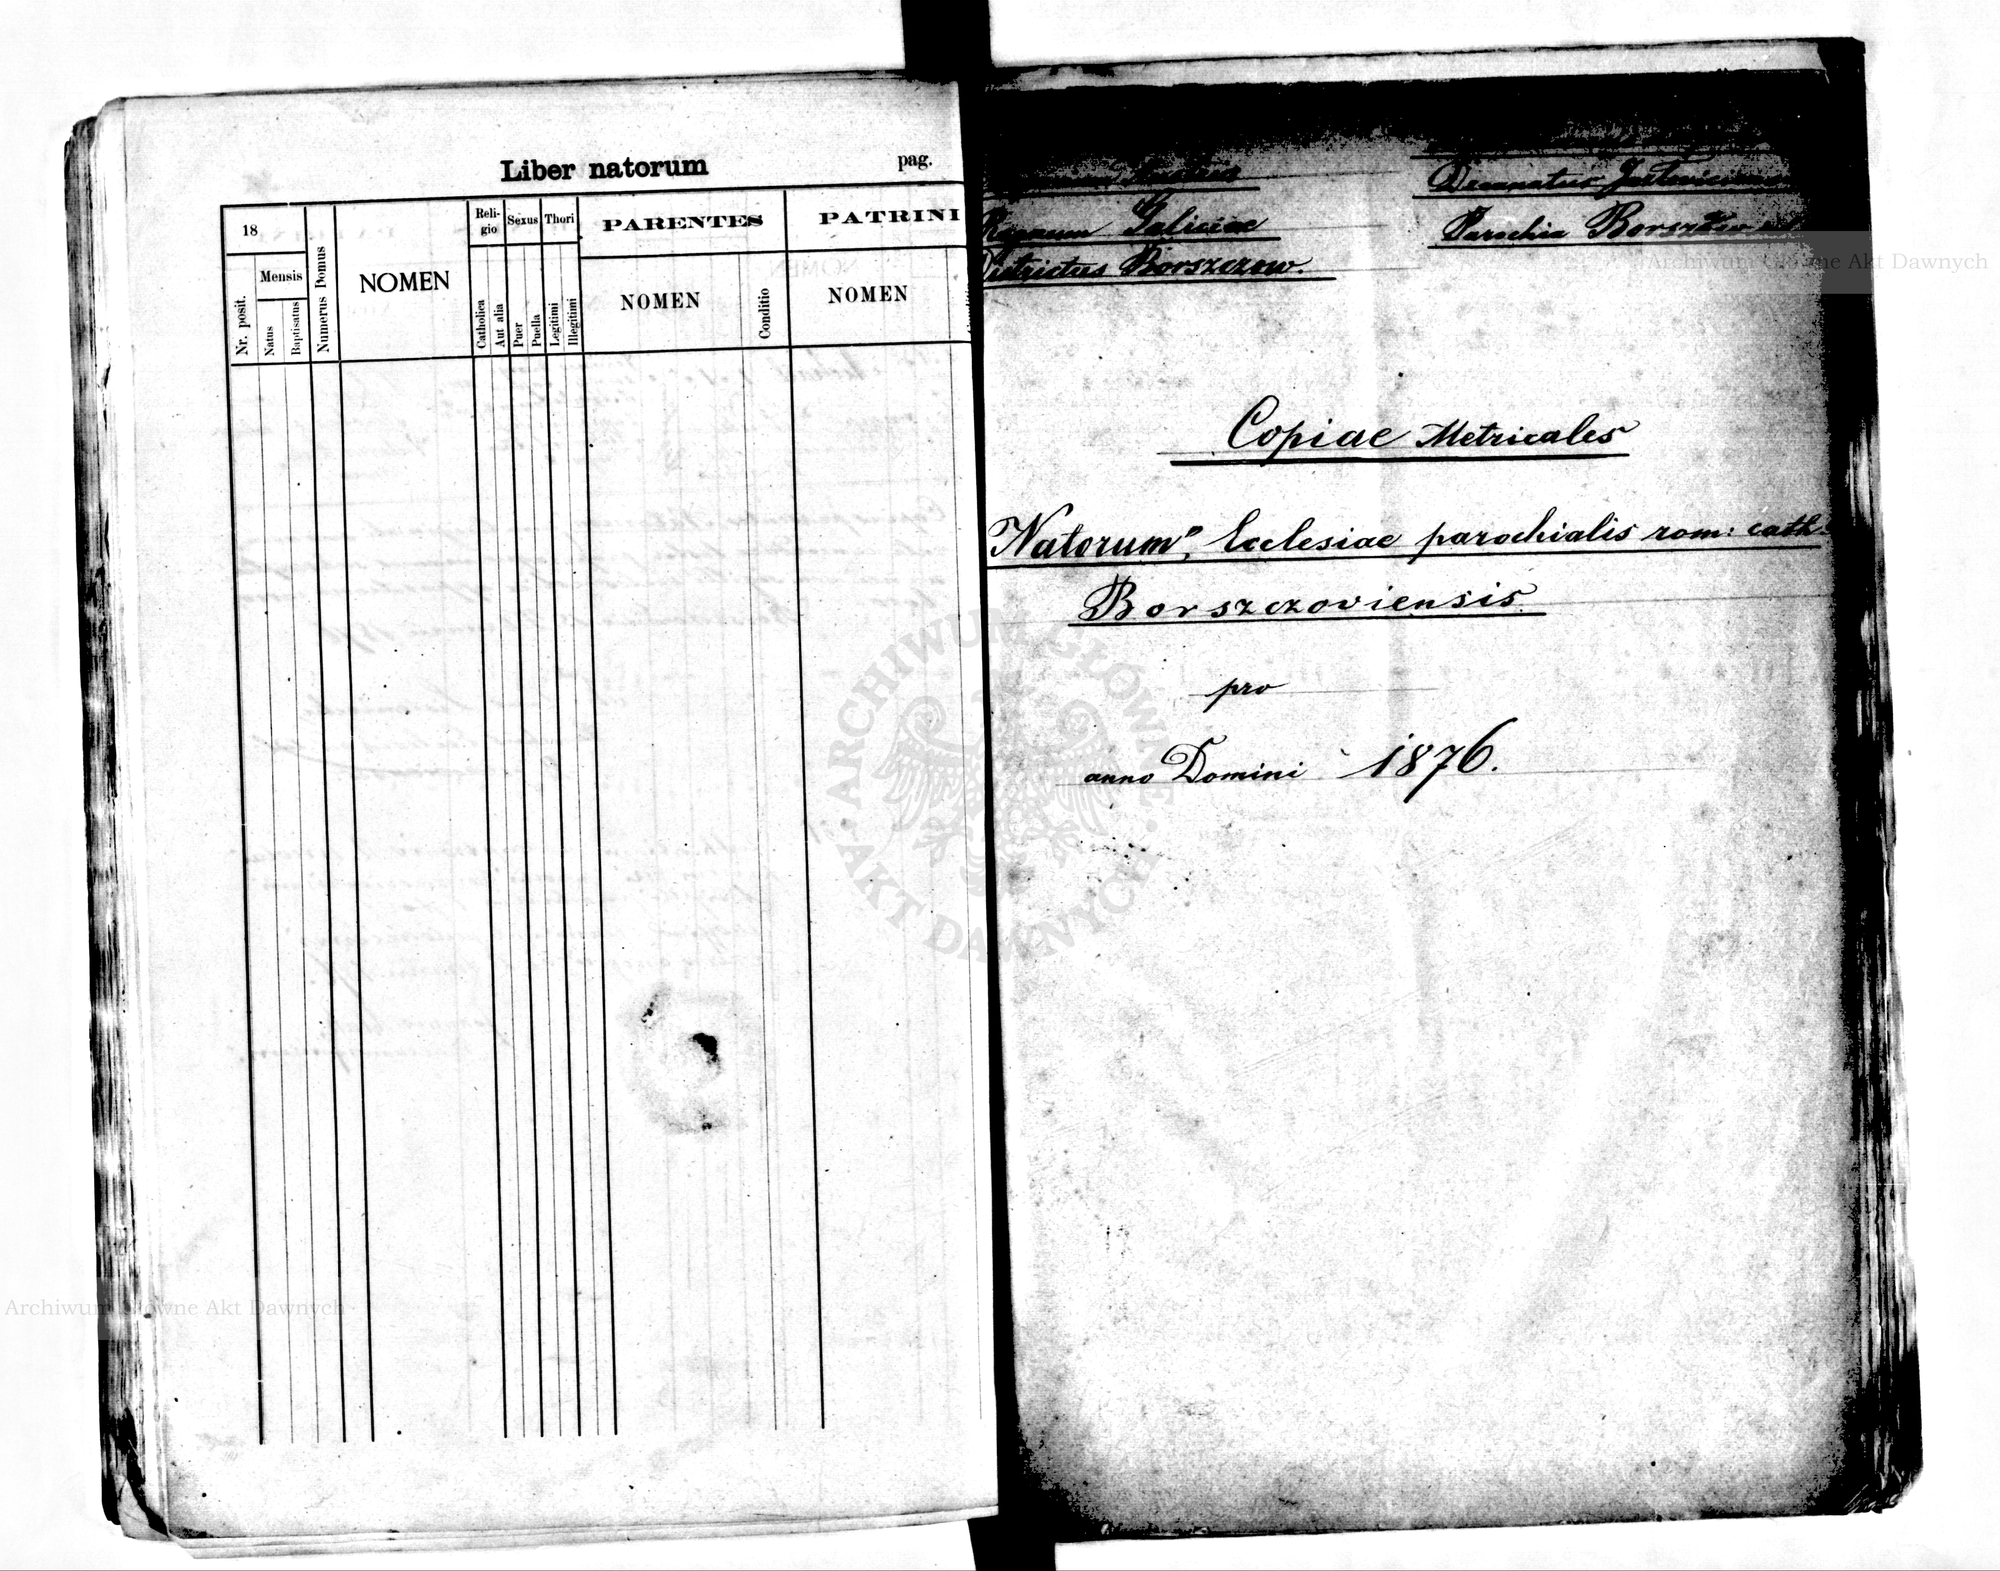 Liber natorum
pag.
18
Mensis
Nr. posit.
Natus
Baptisatus
Numerus Domus
NOMEN
Reli-
gio
Catholica
Aut alia
Sexus
Puer
Puella
Thori
Legitimi
Illegitimi
PARENTES
NOMEN
Conditio
PATRINI
NOMEN
Regnum Galiciae
Districtus Borszczow.
Decanatus
Parochia
Copiae Metricales
"Natorum" Ecclesiae parochialis rom: cath:
Borszczoviensis
pro
anno Domini 1876.
ARCHIWUM GŁÓWNE AKT DAWNYCH
Archiwum Główne Akt Dawnych
Archiwum Główne Akt Dawnych